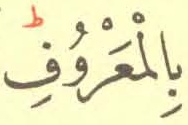 بِالْمَعْرُوْفِ ؕ